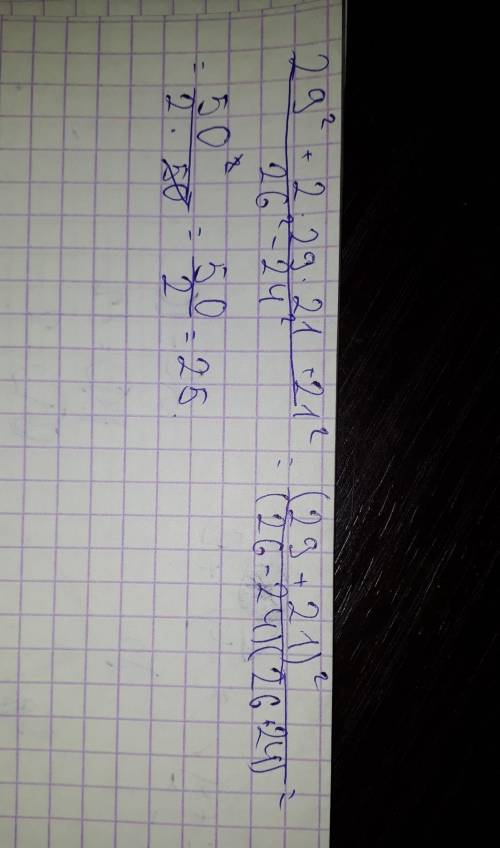 (29² + 2·29·21 + 21²)/(26² - 24²) = (29 + 21)²/((26 - 24)(26 + 24)) =
= 50²/(2·50) = 50/2 = 25.